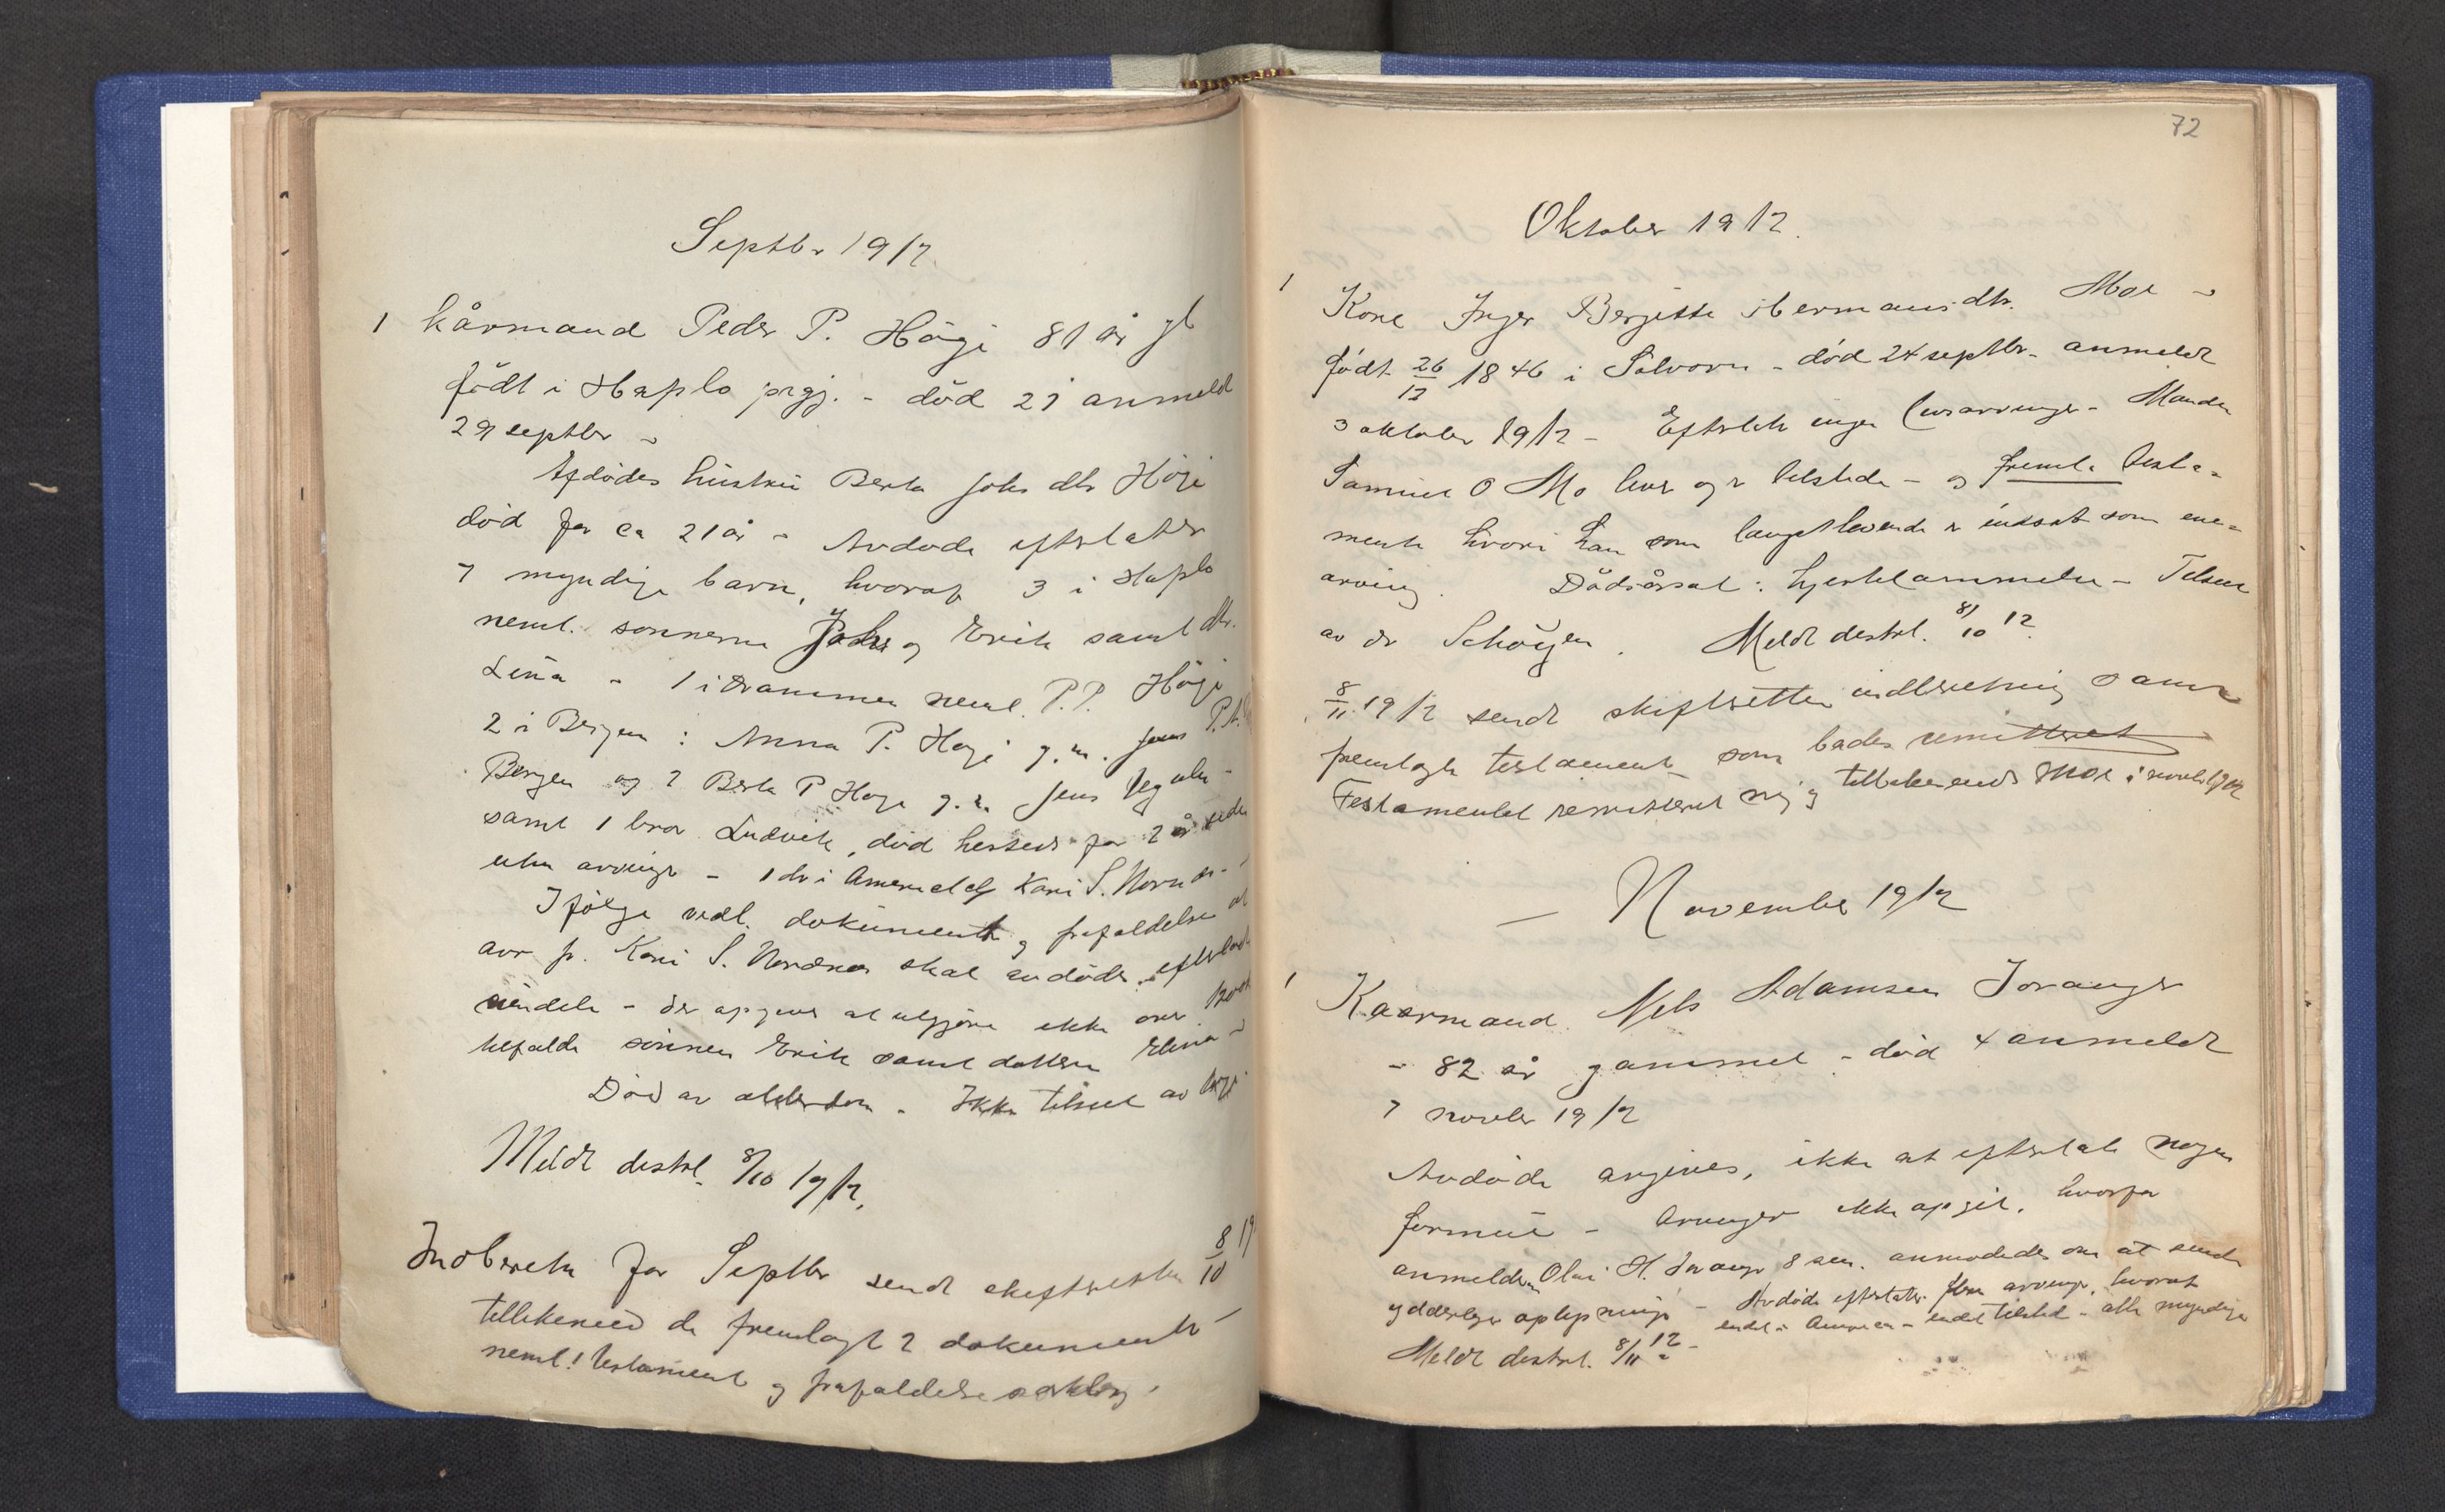 Septbr 1912
1 kårmand Peder P. Högi 81 år gl
født i Hafslo prgj. - död 21 anmeldt
29 septbr -
Afdödes hustru Berta Johs dtr Högi
död for ca 21 år - Avdöde efterlater
7 myndige barn, hvoraf 3 i Hafslo
neml. sönnerne Johs og Erik samt dtr.
Lina - 1 i Drammen neml. P.P. Högi
2 i Bergen : Anna P. Högi g.m. Jens
Bergen og ? Berta P Høgi g.m. Jens
samt 1 bror Ludvik, död hersteds for 2 år siden
uten arvinger - 1 dtr i Amerika Kari S. Nornes -
Ifölge vedl. dokument og frafaldelse av
arv fr. Kari S. Nornes skal avdödes efterladte
eiendele - der opgives at utgjöre ikke over
tilfalde sönnen Erik samt datteren Elina -
Död av alderdom - Ikke tilseet av læge
Meldt distrl. 8/10 1912.
Indberetn for Septbr sendt skifteretten 8/10 19
tillikemed de fremlagte 2 dokumenter
neml! testament og frafaldelseserklæring.
72
Oktober 1912.
1
Kone Inger Bergitte Hermansdtr. Moe -
født 26/12 1846 i Solvorn - död 24 septbr - anmeldt
3 oktober 1912 - Efterlot ingen livsarvinger - Manden
Samuel O Mo lever og er tilstede - og freml. testa=
mente hvori han som længstlevende er indsat som ene=
arving. Dödsårsak: hjertelammelse - Tilseet
av dr Schöyen. Meldt distrl. 8/10 12.
8/11 1912 sendt skifteretten indberetning samt
fremlagte testament som bades remitteret
Testamentet remitteret mig og tilbakesendt Moe i novbr 1912
- November 1912
1
Kaarmand Nils Adamsen Joranger
- 82 år gammel - död 4 anmeldt
7 novbr 1912
Avdöde angives, ikke at efterlate nogen
formue - Arvinger ikke opgit, hvorfor
anmelderen Olai H. Joranger 8 sen. anmodedes om at sende
yderligere oplysninger - Avdöde efterlater flere arvinger, hvorav
endel i Amerika - endel tilsted - alle myndige
Meldt distrl. 8/11 12 -